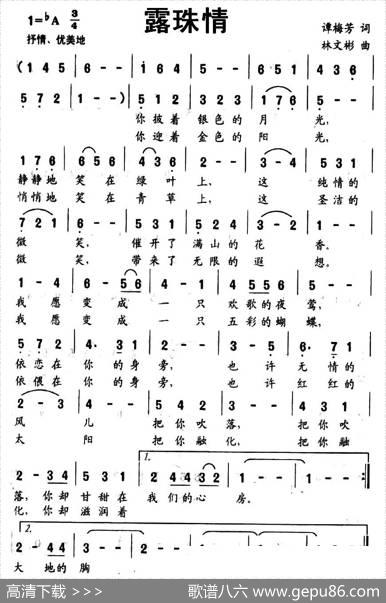 露珠情
1=♭A 3/4
抒情、优美地
谭梅芳 词
林文彬 曲
(1 4 5 | 6 - - | 1 6 4 | 5 - - | 6 5 1 | 4 3 6 |
5 7 2 | 1 - -) | 5 1 2 | 3 2 3 | 1 7 6 | 5 - - |
你披着 银色的 月 光,
你迎着 金色的 阳 光,
1 7 6 | 6 5 6 | 4 3 6 | 2 - - | 3 - 4 | 5 3 1 |
静静地 笑在 绿叶 上, 这 纯情的
悄悄地 笑在 青草 上, 这 圣洁的
7 2 1 | 6 - - | 5 3 1 | 5 2 4 | 3 - 2 | 1 - - |
微 笑, 催开了 满山的 花 香。
微 笑, 带来了 无限的 遐 想。
1 - 4 | 6 - 5 6 | 4 - 3 | 2 4 5 5 | 6 - - |
我 愿 变 成 一 只 欢歌的夜 莺,
我 愿 变 成 一 只 五彩的蝴 蝶,
5 7 2 | 4 3 2 | 3 - - | 2 - 5 | 6. 7 1 |
依恋在 你的身 旁, 也 许 无 情的
依偎在 你的身 旁, 也 许 红 红的
2 - 3 | 6 - - | 5 4 2 | 5 - - | 4 3 1 |
风 儿 把你吹 落, 把你吹
太 阳 把你融 化, 把你融
1.
2 - 3 4 | 5 3 1 | 2 4 4 3 2 | 1 - - | 1 - - :|
落,你却 甘甜在 我 们的心 房。
化,你却 滋润着
2.
2 - 4 4 | 3 - 2 | 1 - - | 1 - - | 1 - - ‖
大 地的 胸
高清下载 >>>
歌谱八六 www.gepu86.com